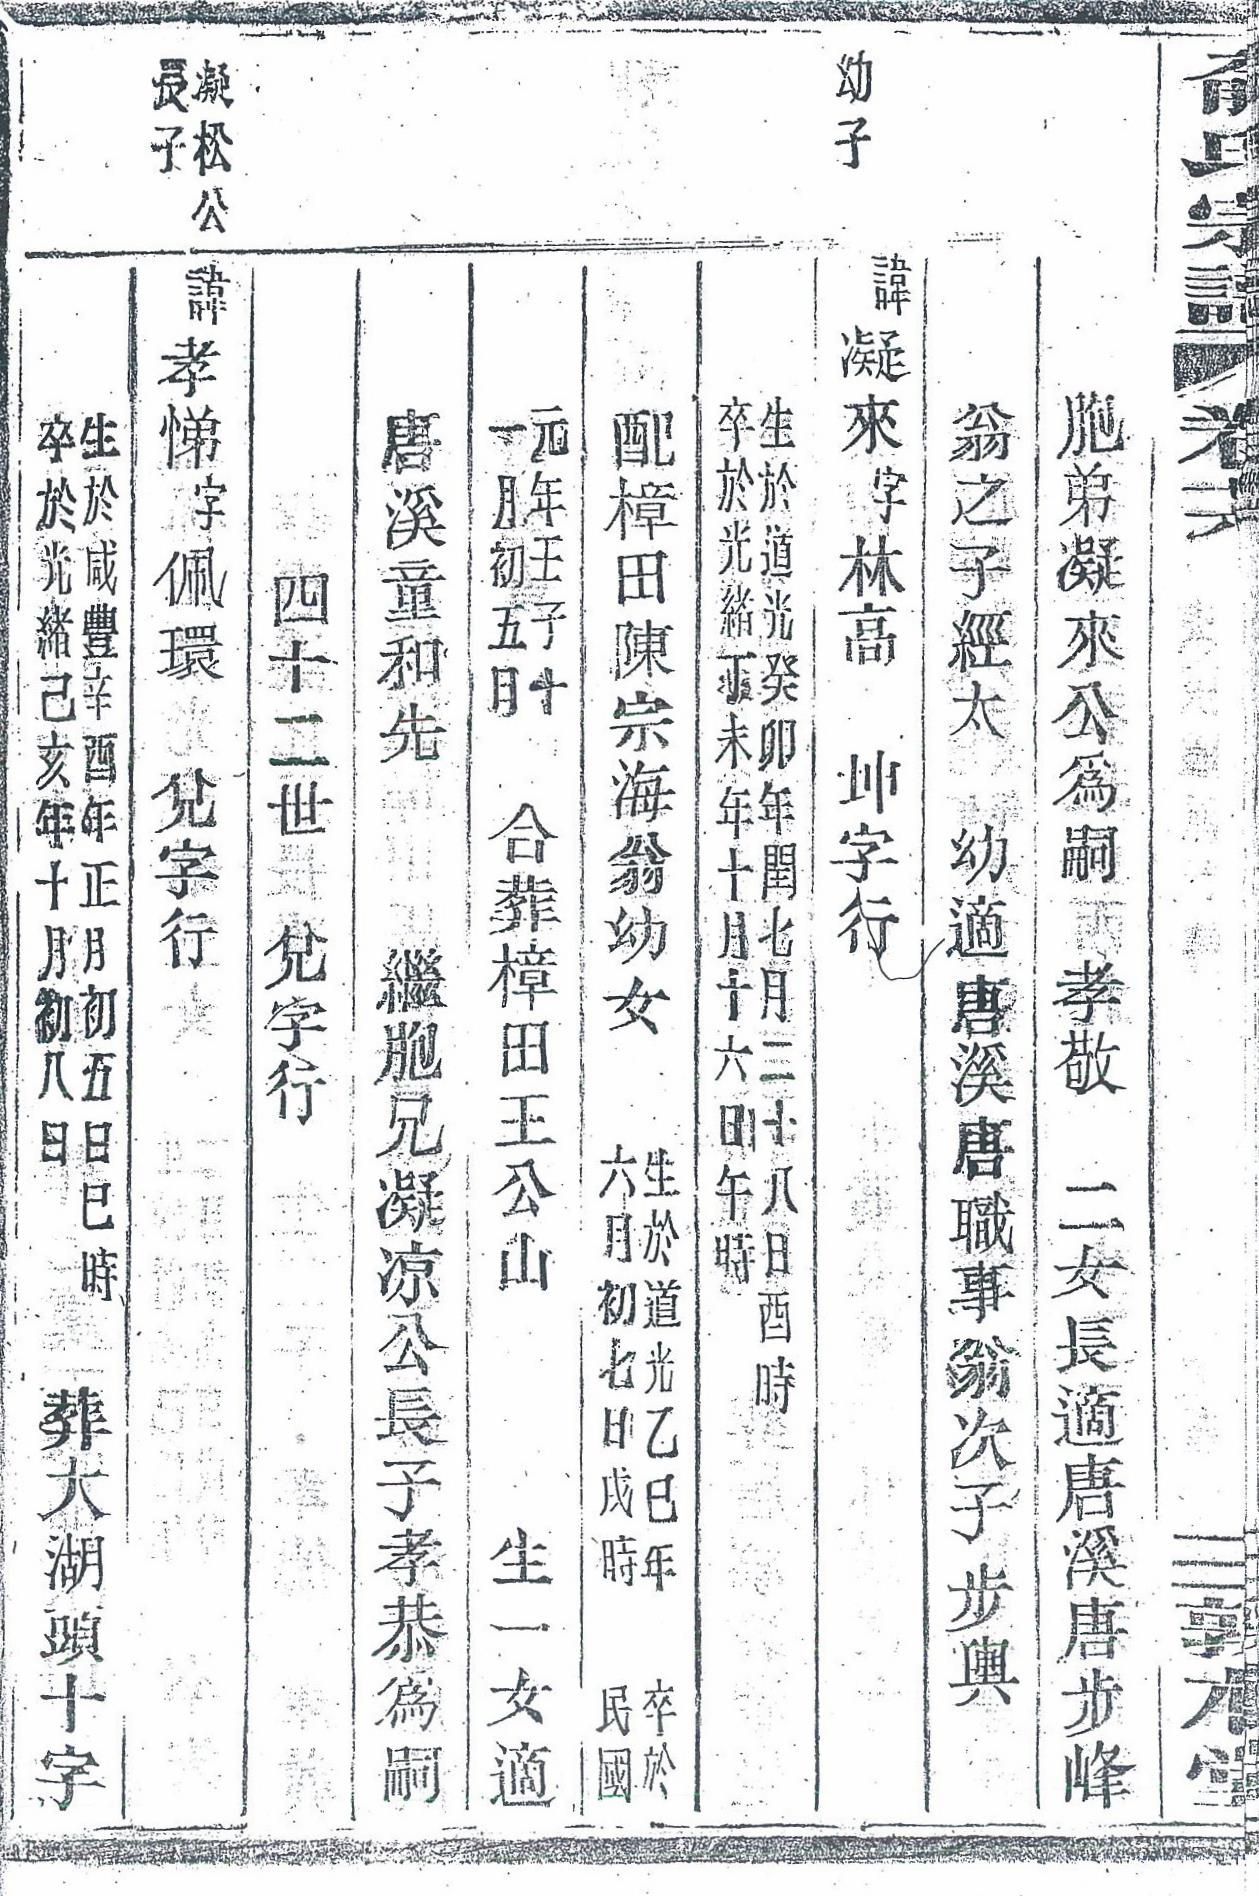 氏宗譜 卷六
三 敦本堂
胞弟凝來公爲嗣 孝敬 二女長適唐溪唐步峰
翁之子經太 幼適唐溪唐職事翁次子步輿
幼子
諱凝來字林高 坤字行
生於道光癸卯年閏七月二十八日酉時
卒於光緒丁未年十月十六日午時
配樟田陳宗海翁幼女 生於道光乙巳年
六月初七日戌時 卒於
民國
元年壬子十
一月初五日 合葬樟田王公山 生一女適
唐溪童和先 繼胞兄凝凉公長子孝恭爲嗣
四十二世 兌字行
凝松公
長子
諱孝悌字佩環 兌字行
生於咸豐辛酉年正月初五日巳時
卒於光緒己亥年十月初八日 葬大湖頭十字